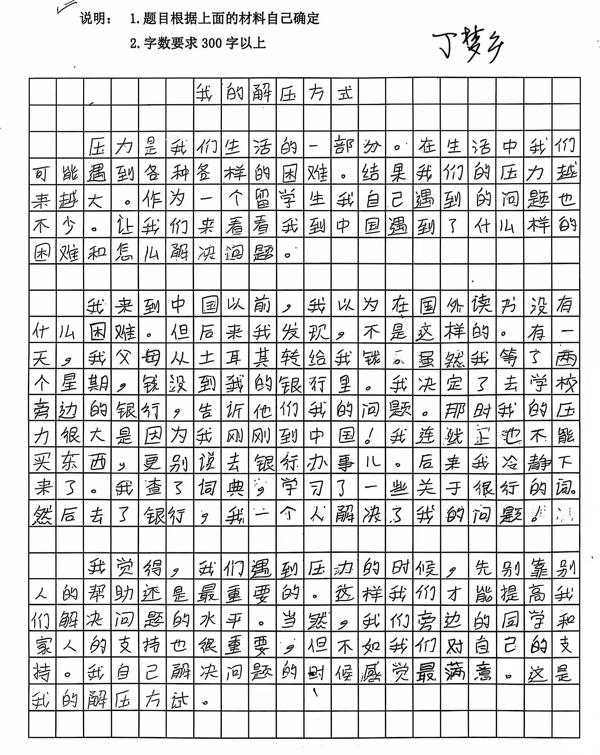 说明： 1.题目根据上面的材料自己确定
2.字数要求 300 字以上
丁梦乡
我的解压方式
压力是我们生活的一部分。在生活中我们
可能遇到各种各样的困难。结果我们的压力越
来越大。作为一个留学生我自己遇到的问题也
不少。让我们来看看我到中国遇到了什么样的
困难和怎么解决问题。
我来到中国以前，我以为在国外读书没有
什么困难。但后来我发现，不是这样的。有一
天，我父母从土耳其转给我钱。虽然我等了两
个星期，钱没到我的银行里。我决定了去学校
旁边的银行，告诉他们我的问题。那时我的压
力很大是因为我刚刚到中国！我连也不能
买东西，更别说去银行办事儿。后来我冷静下
来了。我查了词典，学习了一些关于很行的词。
然后去了银行，我一个人解决了我的问题。
我觉得，我们遇到压力的时候，先别靠别
人的帮助还是最重要的。这样我们才能提高我
们解决问题的水平。当然，我们旁边的同学和
家人的支持也很重要，但不如我们对自己的支
持。我自己解决问题的时候感觉最满意。这是
我的解压方试。